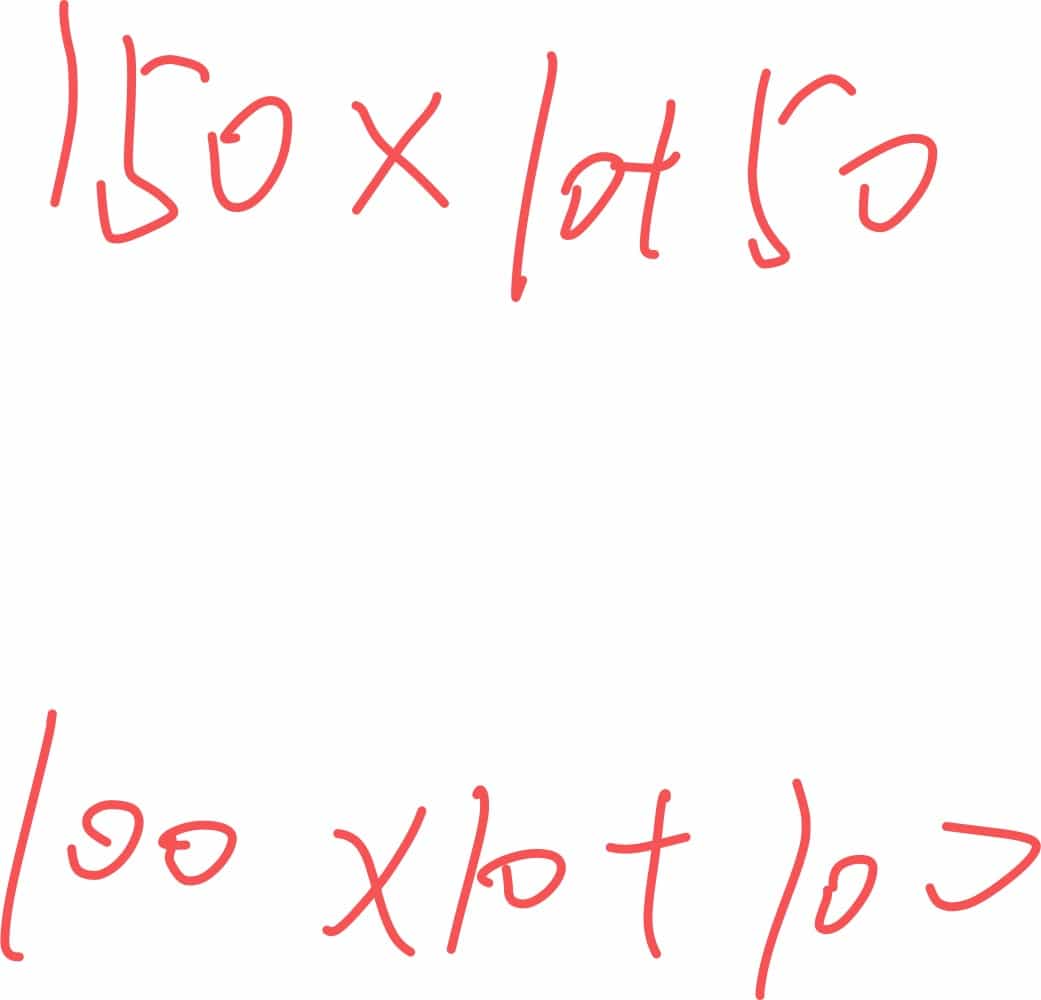 150 × 10+50
100 × 10 + 100